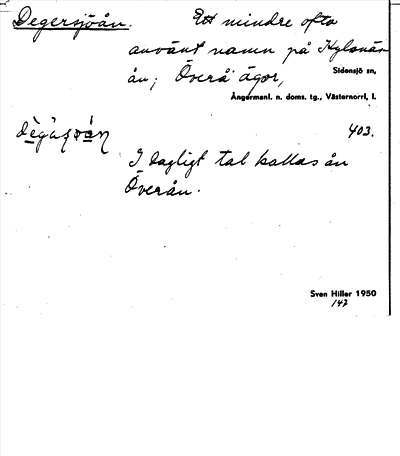 Degersjöån. Ett mindre ofta
använt namn på Kylsnäs-
ån; Överå ägor,
Sidensjö sn,
Ångermanl. n. doms. tg., Västernorrl. l.
403.
I dagligt tal kallas ån
Överån.
Sven Hiller 1950
147